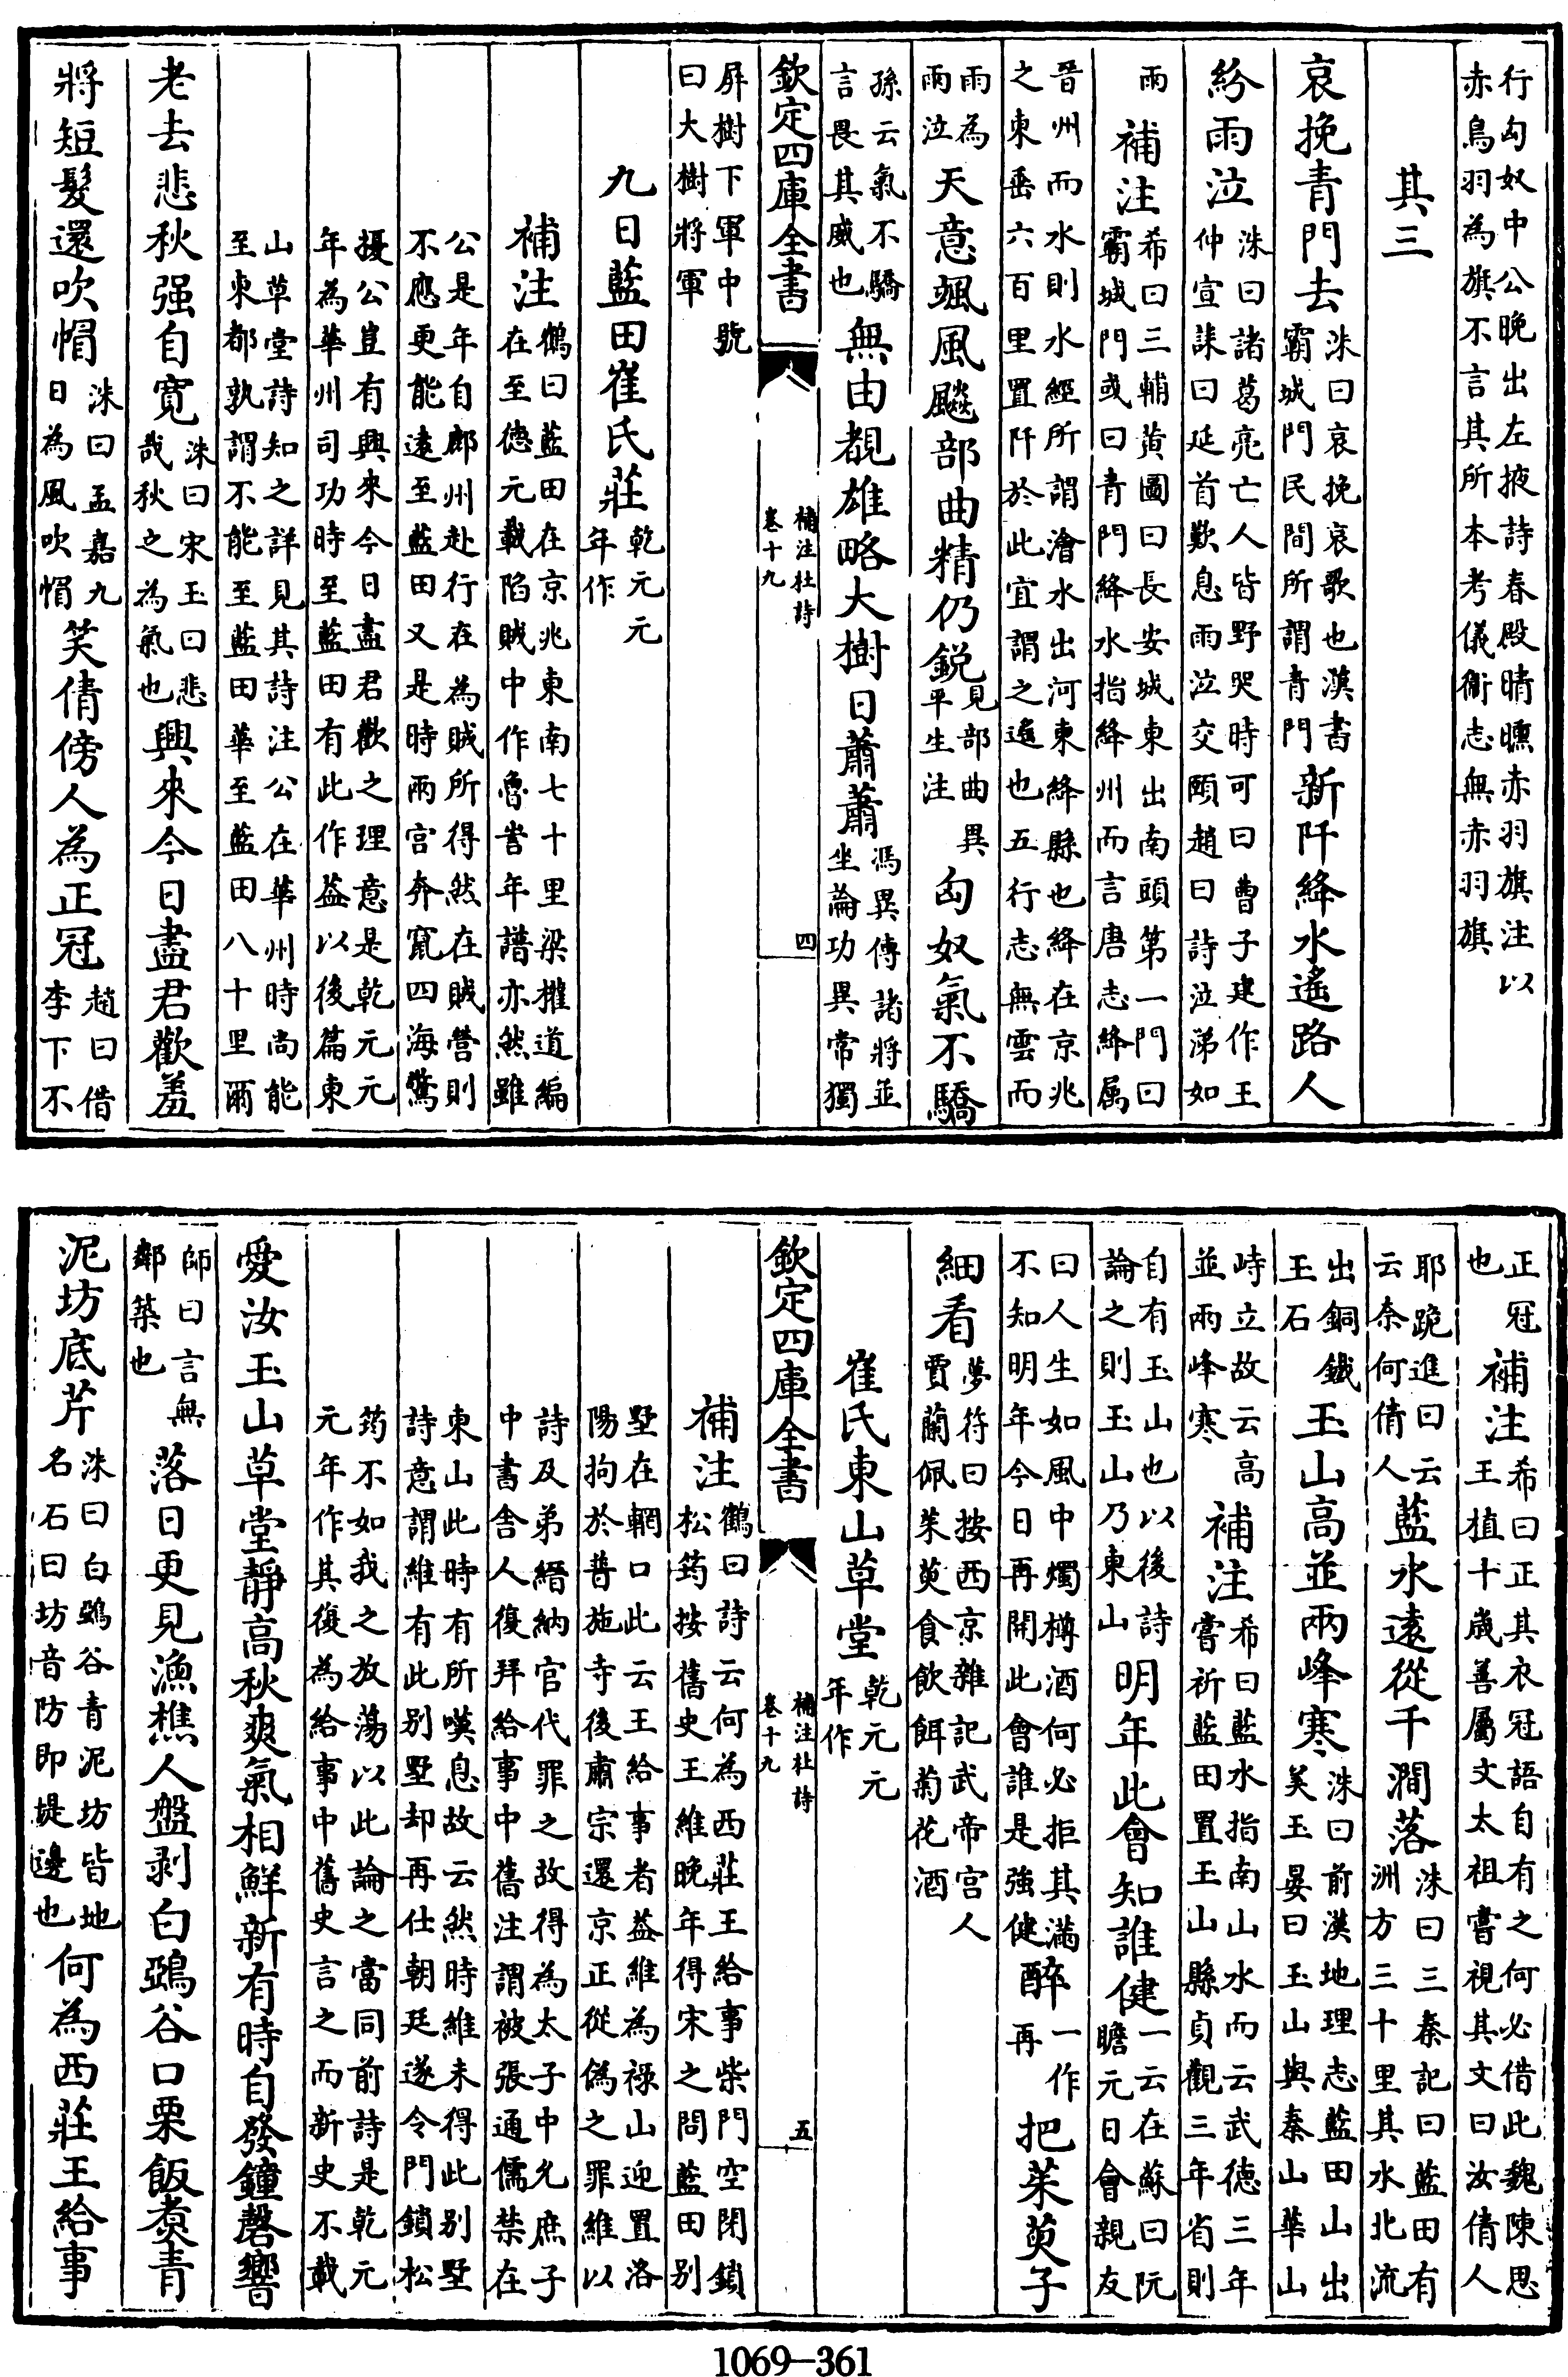 行匈奴中公晚出左掖詩春殿晴曛赤羽旗注以
赤鳥羽為旗不言其所本考儀衛志無赤羽旗
其三
哀挽青門去洙曰哀挽哀歌也漢書霸城門民間所謂青門新阡絳水遙路人
紛雨泣洙曰諸葛亮亡人皆野哭時可曰曹子建作王仲宣誄曰延首歎息雨泣交頤趙曰詩泣涕如
雨補注希曰三輔黃圖曰長安城東出南頭第一門曰霸城門或曰青門絳水指絳州而言唐志絳屬
晉州而水則水經所謂澮水出河東絳縣也絳在京兆之東垂六百里置阡於此宜謂之遙也五行志無雲而
雨為雨泣天意颯風飈部曲精仍鋭見部曲異平生注匈奴氣不驕
孫云氣不驕言畏其威也無由覩雄略大樹日蕭蕭馮異傳諸將並坐論功異常獨
欽定四庫全書 補注杜詩卷十九 四
屏樹下軍中號曰大樹將軍
九日藍田崔氏莊乾元元年作
補注鶴曰藍田在京兆東南七十里梁權道編在至德元載陷賊中作魯訔年譜亦然雖
公是年自鄜州赴行在為賊所得然在賊營則不應更能遠至藍田又是時兩宮奔竄四海驚
擾公豈有興來今日盡君歡之理意是乾元元年為華州司功時至藍田有此作蓋以後篇東
山草堂詩知之詳見其詩注公在華州時尚能至東都孰謂不能至藍田華至藍田八十里爾
老去悲秋强自寬洙曰宋玉曰悲哉秋之為氣也興來今日盡君歡羞
將短髮還吹帽洙曰孟嘉九日為風吹帽笑倩傍人為正冠趙曰借李下不
正冠也補注希曰正其衣冠語自有之何必借此魏陳思王植十歲善屬文太祖嘗視其文曰汝倩人
耶跪進曰云云奈何倩人藍水遠從千澗落洙曰三秦記曰藍田有洲方三十里其水北流
出銅鐵玉石玉山高並兩峰寒洙曰前漢地理志藍田山出美玉晏曰玉山與秦山華山
峙立故云高並兩峰寒補注希曰藍水指南山水而云武德三年嘗析藍田置玉山縣貞觀三年省則
自有玉山也以後詩論之則玉山乃東山明年此會知誰健一云在蘇曰阮瞻元日會親友
曰人生如風中燭樽酒何必拒其滿不知明年今日再開此會誰是強健醉一作再把茱萸子
細看夢符曰按西京雜記武帝宮人賈蘭佩茱萸食飲餌菊花酒
崔氏東山草堂乾元元年作
欽定四庫全書 補注杜詩卷十九 五
補注鶴曰詩云何為西莊王給事柴門空閉鎖松筠按舊史王維晚年得宋之問藍田別
墅在輞口此云王給事者蓋維為祿山迎置洛陽拘於普施寺後肅宗還京正從偽之罪維以
詩及弟縉納官代罪之故得為太子中允庶子中書舍人復拜給事中舊注謂被張通儒禁在
東山此時有所嘆息故云然時維未得此别墅詩意謂維有此别墅却再仕朝廷遂令門鎖松
筠不如我之放蕩以此論之當同前詩是乾元元年作其復為給事中舊史言之而新史不載
愛汝玉山草堂靜高秋爽氣相鮮新有時自發鐘磬響
師曰言無鄰築也落日更見漁樵人盤剥白鵶谷口栗飯煮青
泥坊底芹洙曰白鵶谷青泥坊皆地名石曰坊音防即堤邊也何為西莊王給事
1069—361